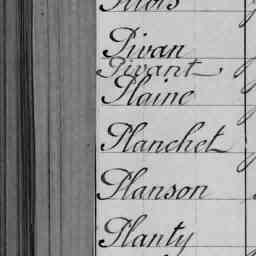 Pivan
Pivant
Plaine
Planchet
Planson
Planty